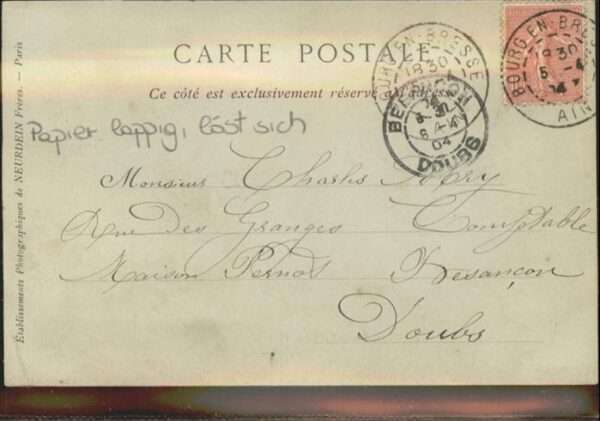 CARTE POSTALE
Ce côté est exclusivement réservé à l'adresse
Papier lappig, löst sich
Monsieur Charles
Rue des Granges Comptable
Maison Pernod Besançon
Doubs
Établissements Photographiques de NEURDEIN Frères. — Paris
BOURG-EN-BRESSE
18 30
BESANÇON
04
DOUBS
BOURG-EN-BRESSE
18 30
5 -4
04
AIN